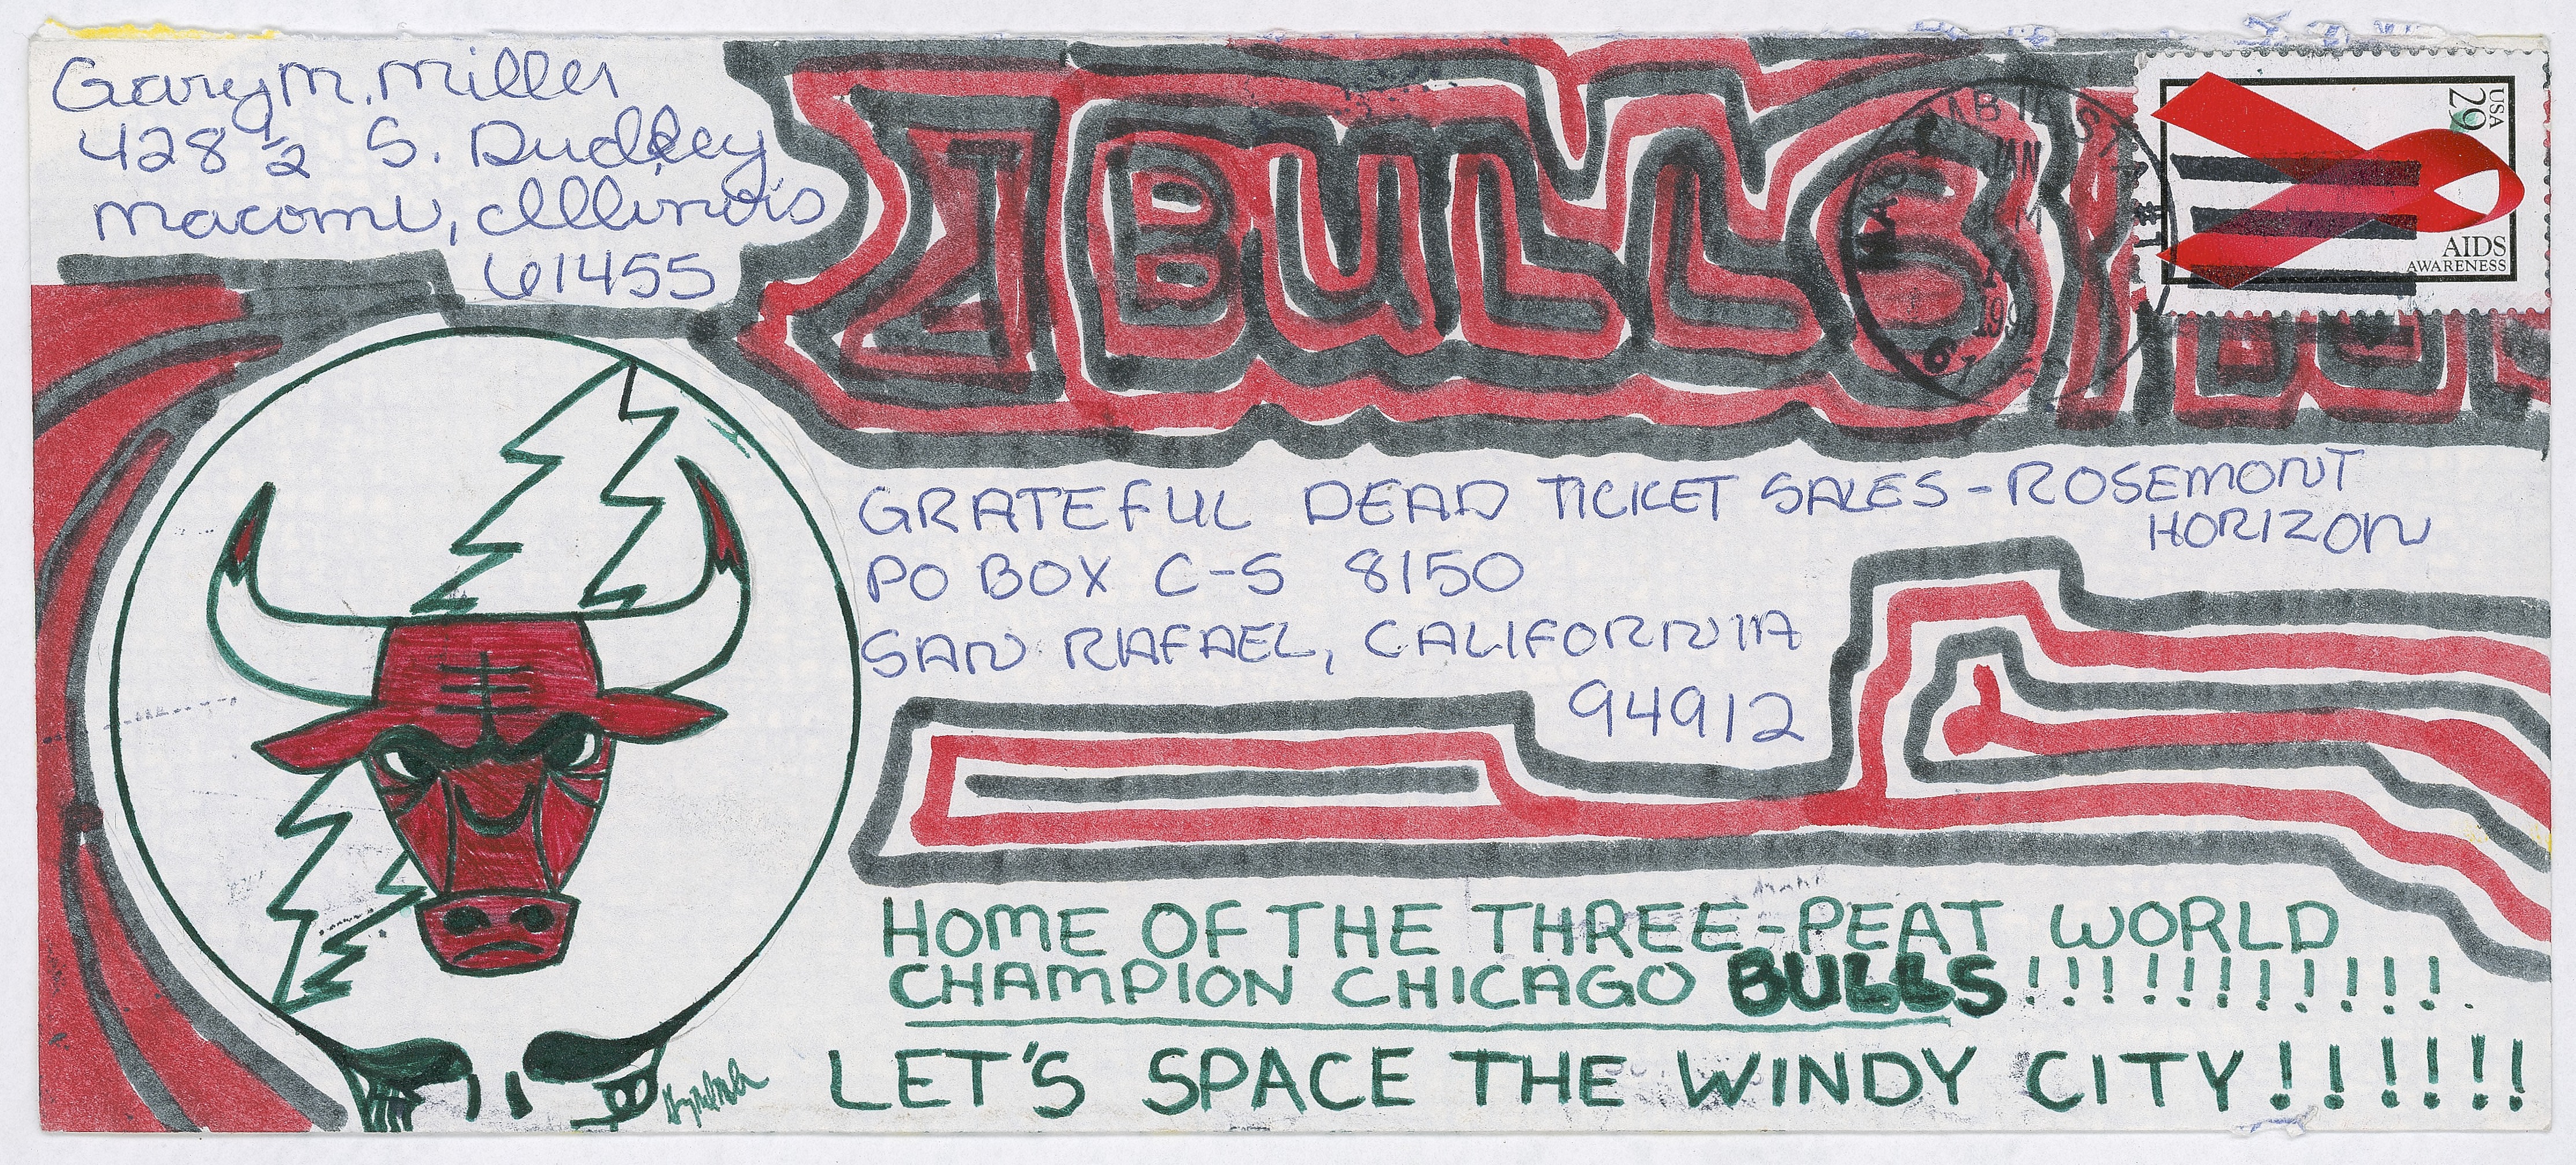 Gary M. Miller
428 1/2 S. Dudley
Macomb, Illinois
61455
BULLS
JAN
14
1994
USA
29
AIDS
AWARENESS
GRATEFUL DEAD TICKET SALES - ROSEMONT
HORIZON
PO BOX C-S 8150
SAN RAFAEL, CALIFORNIA
94912
HOME OF THE THREE-PEAT WORLD
CHAMPION CHICAGO BULLS!!!!!!!!!!!
LET'S SPACE THE WINDY CITY!!!!!!